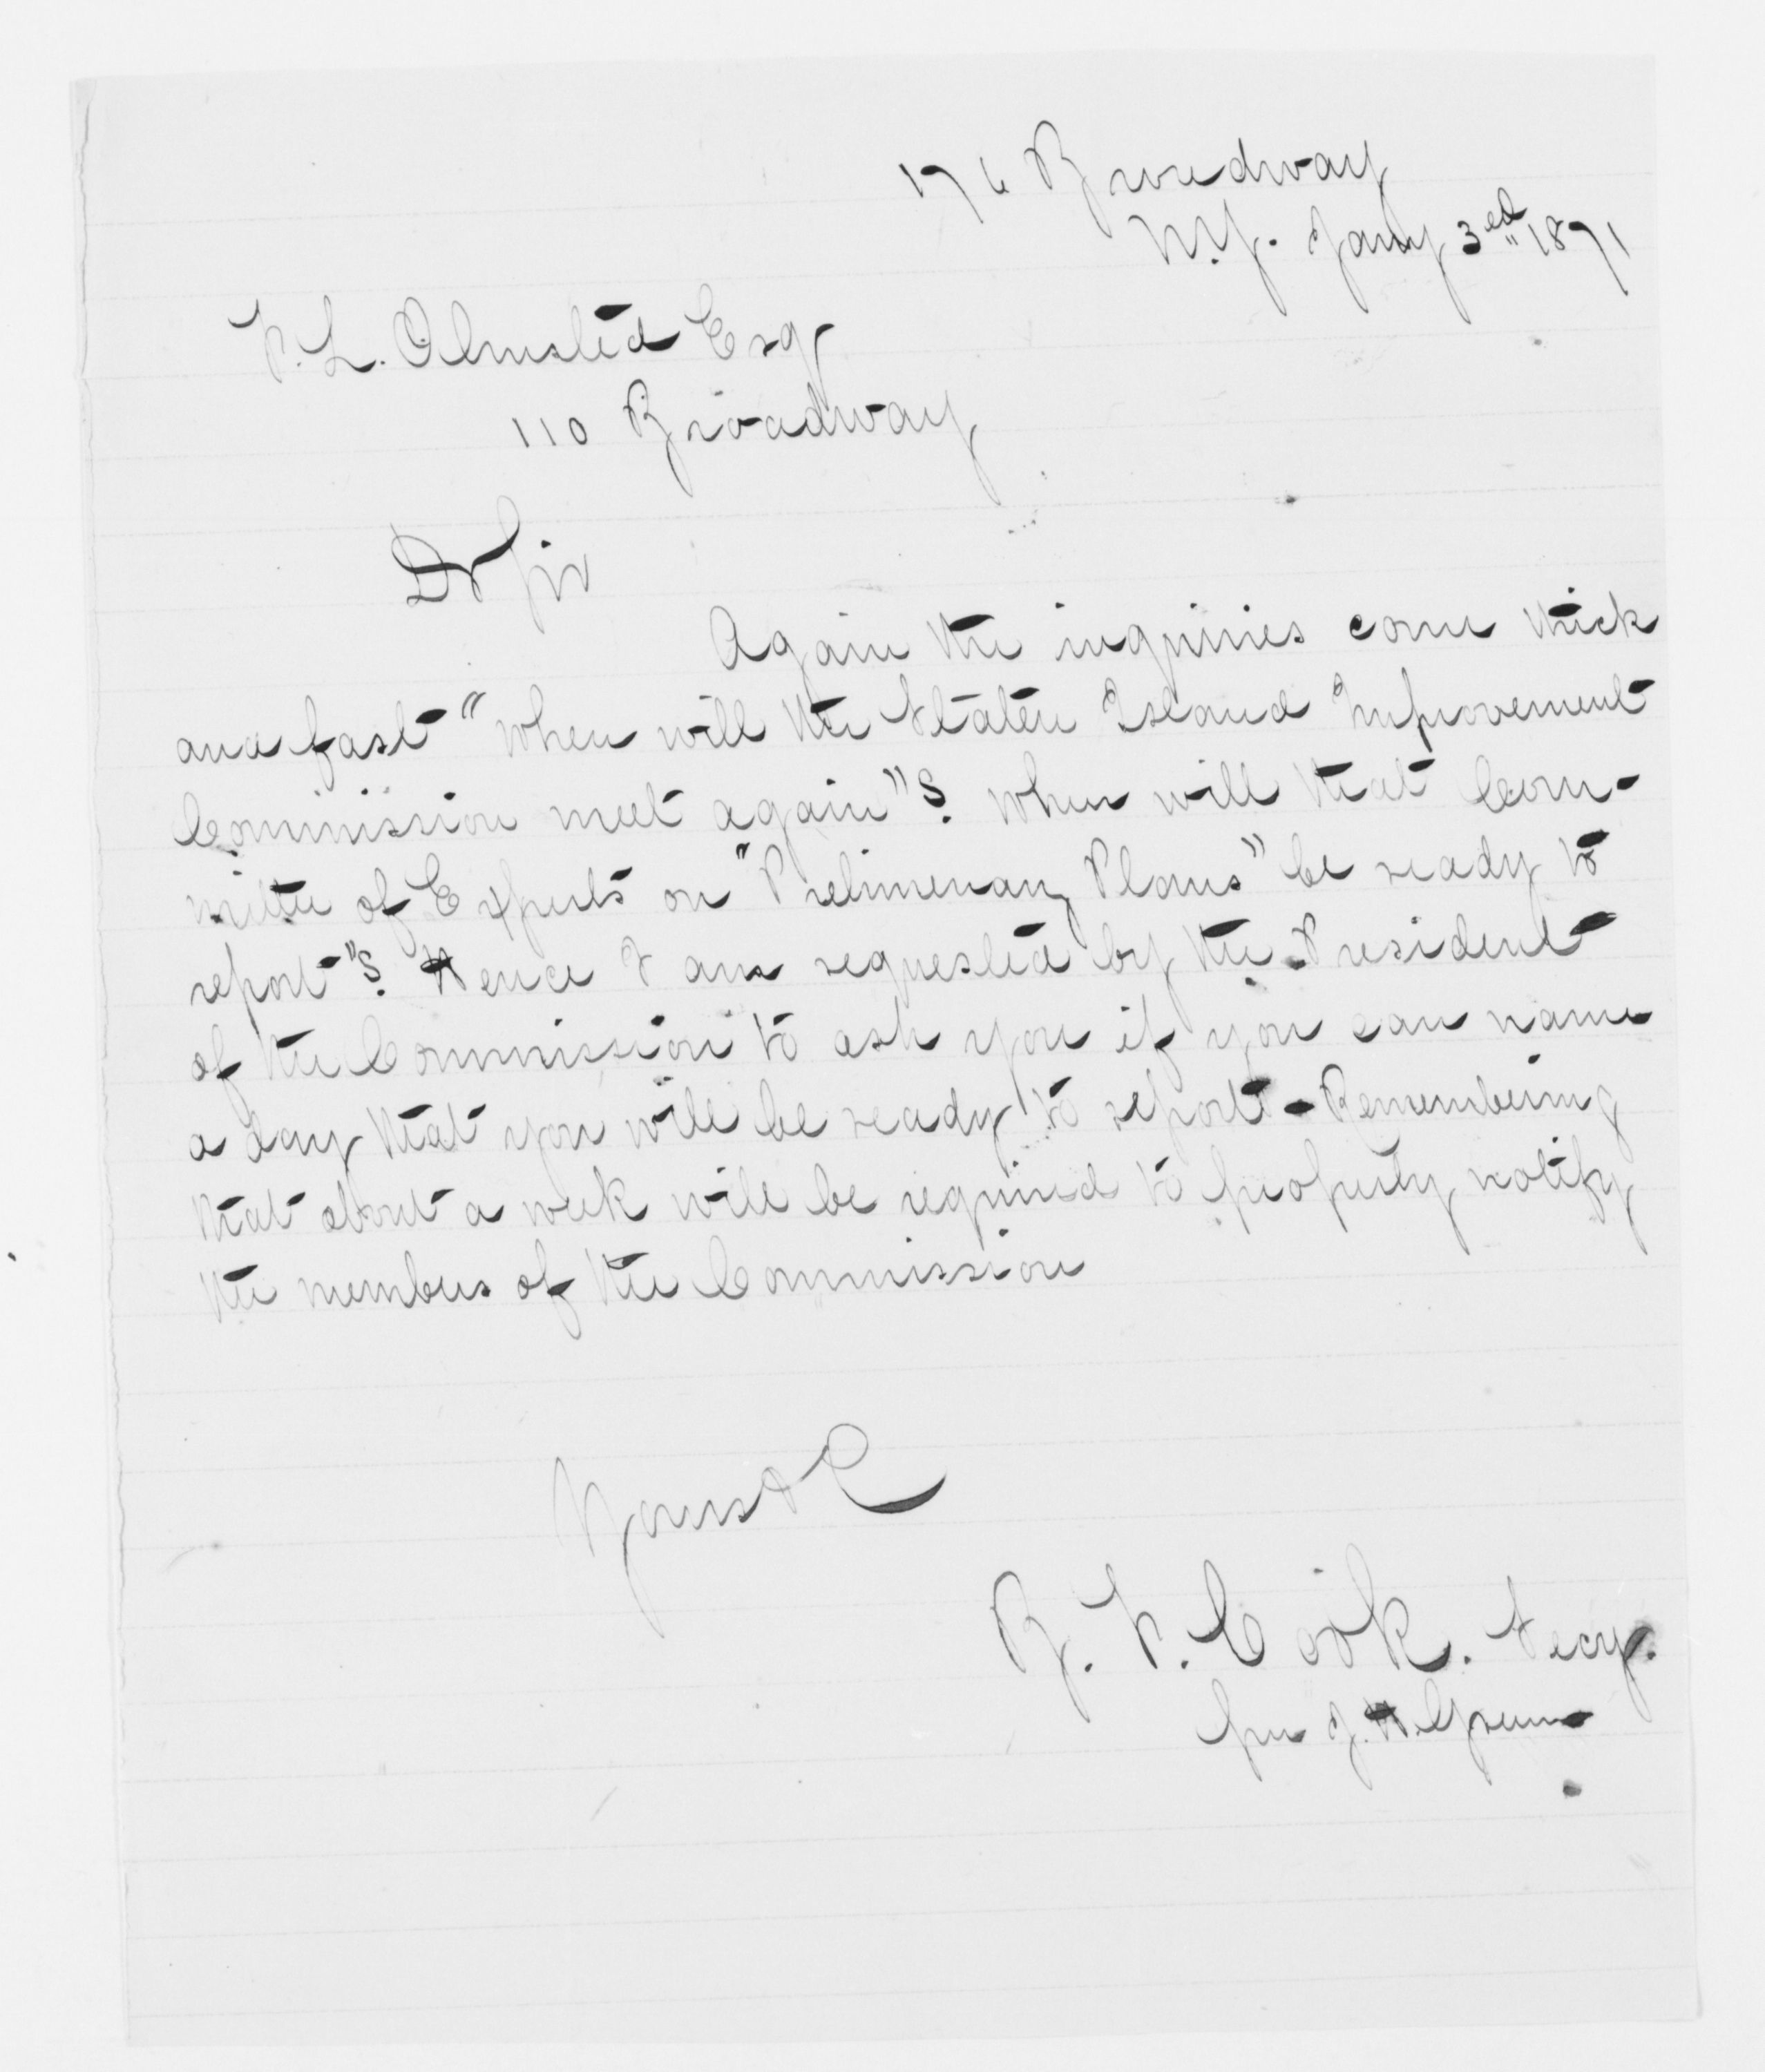 176 Broadway
N.Y. Jany 3ed 1871
F. L. Olmsted Esq
110 Broadway
Dr Sir
Again the inquiries come thick
and fast "When will the Staten Island Improvement
Commission meet again"? When will that Com-
mittee of Experts on "Prelimenary Plans" be ready to
report"? Hence I am requested by the President
of the Commission to ask you if you can name
a day that you will be ready to report - Remembering
that about a week will be required to properly notify
the members of the Commission
Yours &C
B. F. Cook. Secy.
per J. H. Green